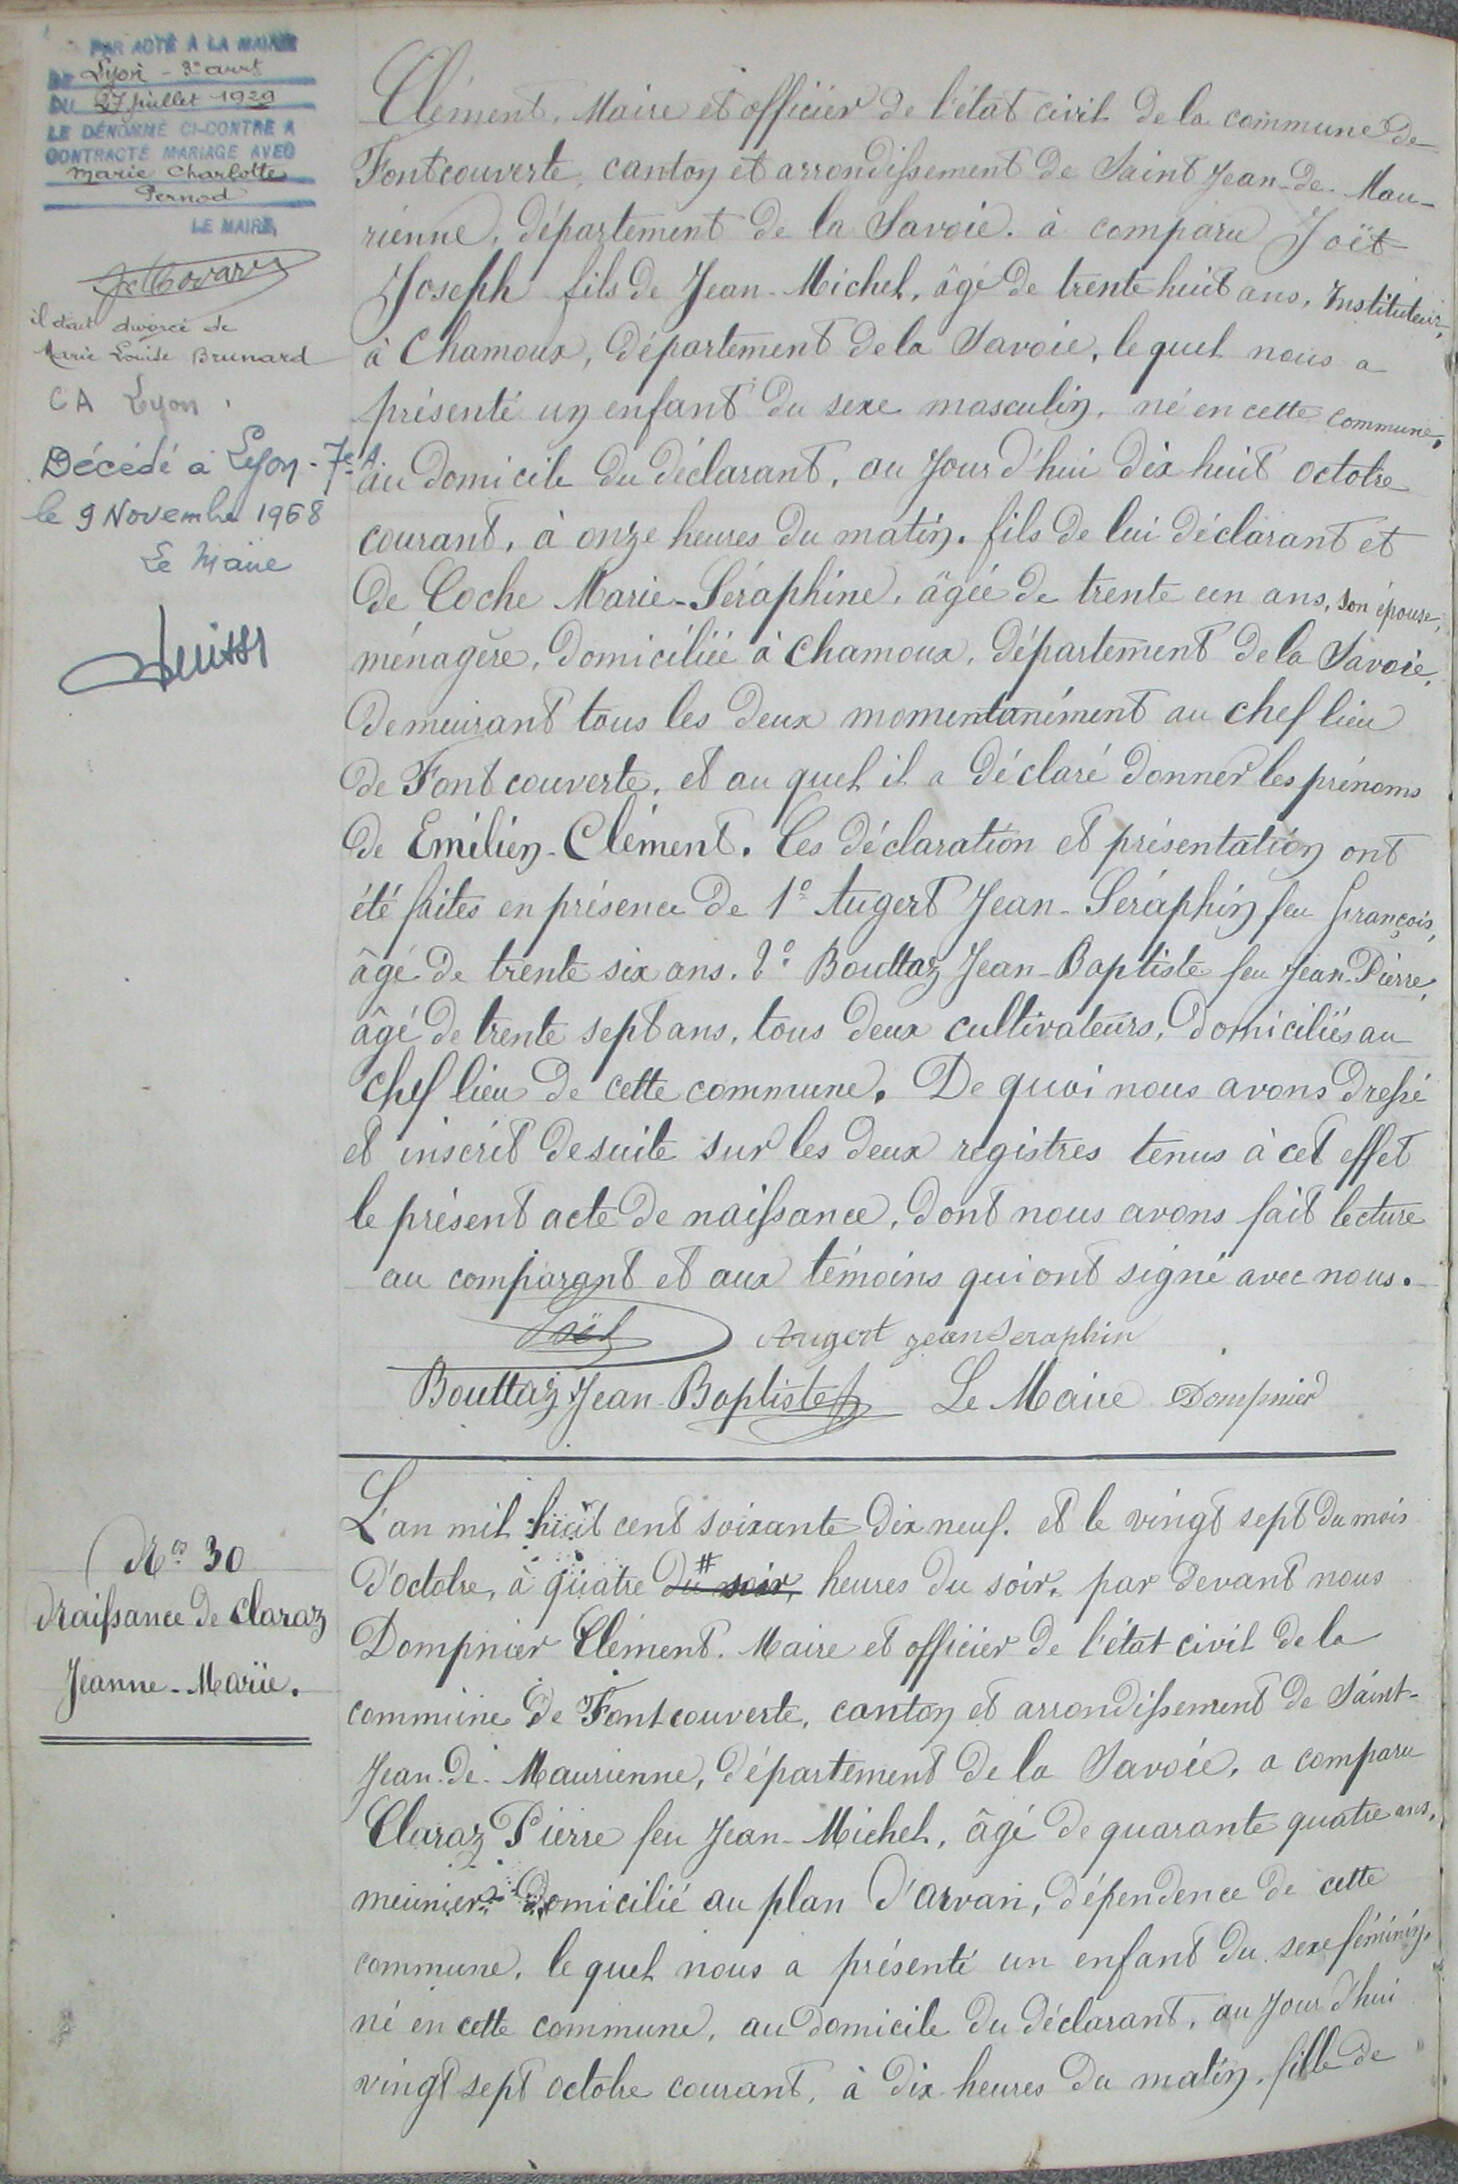 PAR ACTE A LA MAIRIE
DE Lyon - 3e arrt
DU 27 juillet 1929
LE DÉNOMMÉ CI-CONTRE A
CONTRACTÉ MARIAGE AVEC
Marie Charlotte
Pernod
LE MAIRE,
il était divorcé de
Marie Louise Brunard
CA Lyon.
Décédé à Lyon - 7e A
le 9 Novembre 1968
Le Maire
Clément, Maire et officier de l'état civil de la commune de
Fontcouverte, canton et arrondissement de Saint Jean-de-Mau-
rienne, département de la Savoie. à comparu Joët
Joseph fils de Jean-Michel, âgé de trente huit ans, Instituteur,
à Chamoux, département de la Savoie, le quel nous a
présenté un enfant du sexe masculin, né en cette commune,
au domicile du déclarant, au jour d'hui dix huit octobre
courant, à onze heures du matin. fils de lui déclarant et
de Coche Marie-Séraphine, âgée de trente un ans, son épouse,
ménagère, domiciliée à Chamoux, département de la Savoie,
demeurant tous les deux momentanément au chef lieu
de Fontcouverte, et au quel il a déclaré donner les prénoms
de Emilien-Clément. Ces déclaration et présentation ont
été faites en présence de 1° Augert Jean-Séraphin feu François,
âgé de trente six ans. 2° Bouttaz Jean-Baptiste feu Jean-Pierre,
âgé de trente sept ans, tous deux cultivateurs, domiciliés au
chef lieu de cette commune. De quoi nous avons dressé
et inscrit de suite sur les deux registres tenus à cet effet
le présent acte de naissance, dont nous avons fait lecture
au comparant et aux témoins qui ont signé avec nous.
Joët Augert jean Seraphin
Bouttaz Jean-Baptiste Le Maire Dompnier
Nos 30
Naissance de Claraz
Jeanne-Marie.
L'an mil huit cent soixante dix neuf. et le vingt sept du mois
d'octobre, à quatre du soir, heures du soir, par devant nous
Dompnier Clément. Maire et officier de l'état civil de la
commune de Fontcouverte, canton et arrondissement de Saint-
Jean-de-Maurienne, département de la Savoie, a comparu
Claraz Pierre feu Jean-Michel, âgé de quarante quatre ans,
meunier domicilié au plan d'arvan, dépendence de cette
commune, le quel nous a présenté un enfant du sexe féminin,
né en cette commune, au domicile du déclarant, au jour d'hui
vingt sept octobre courant, à dix heures du matin, fille de